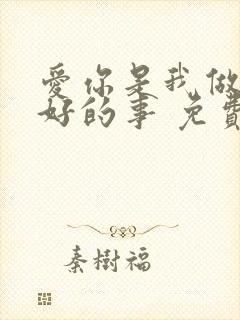 愛你是我做
好的事 免費
秦樹福